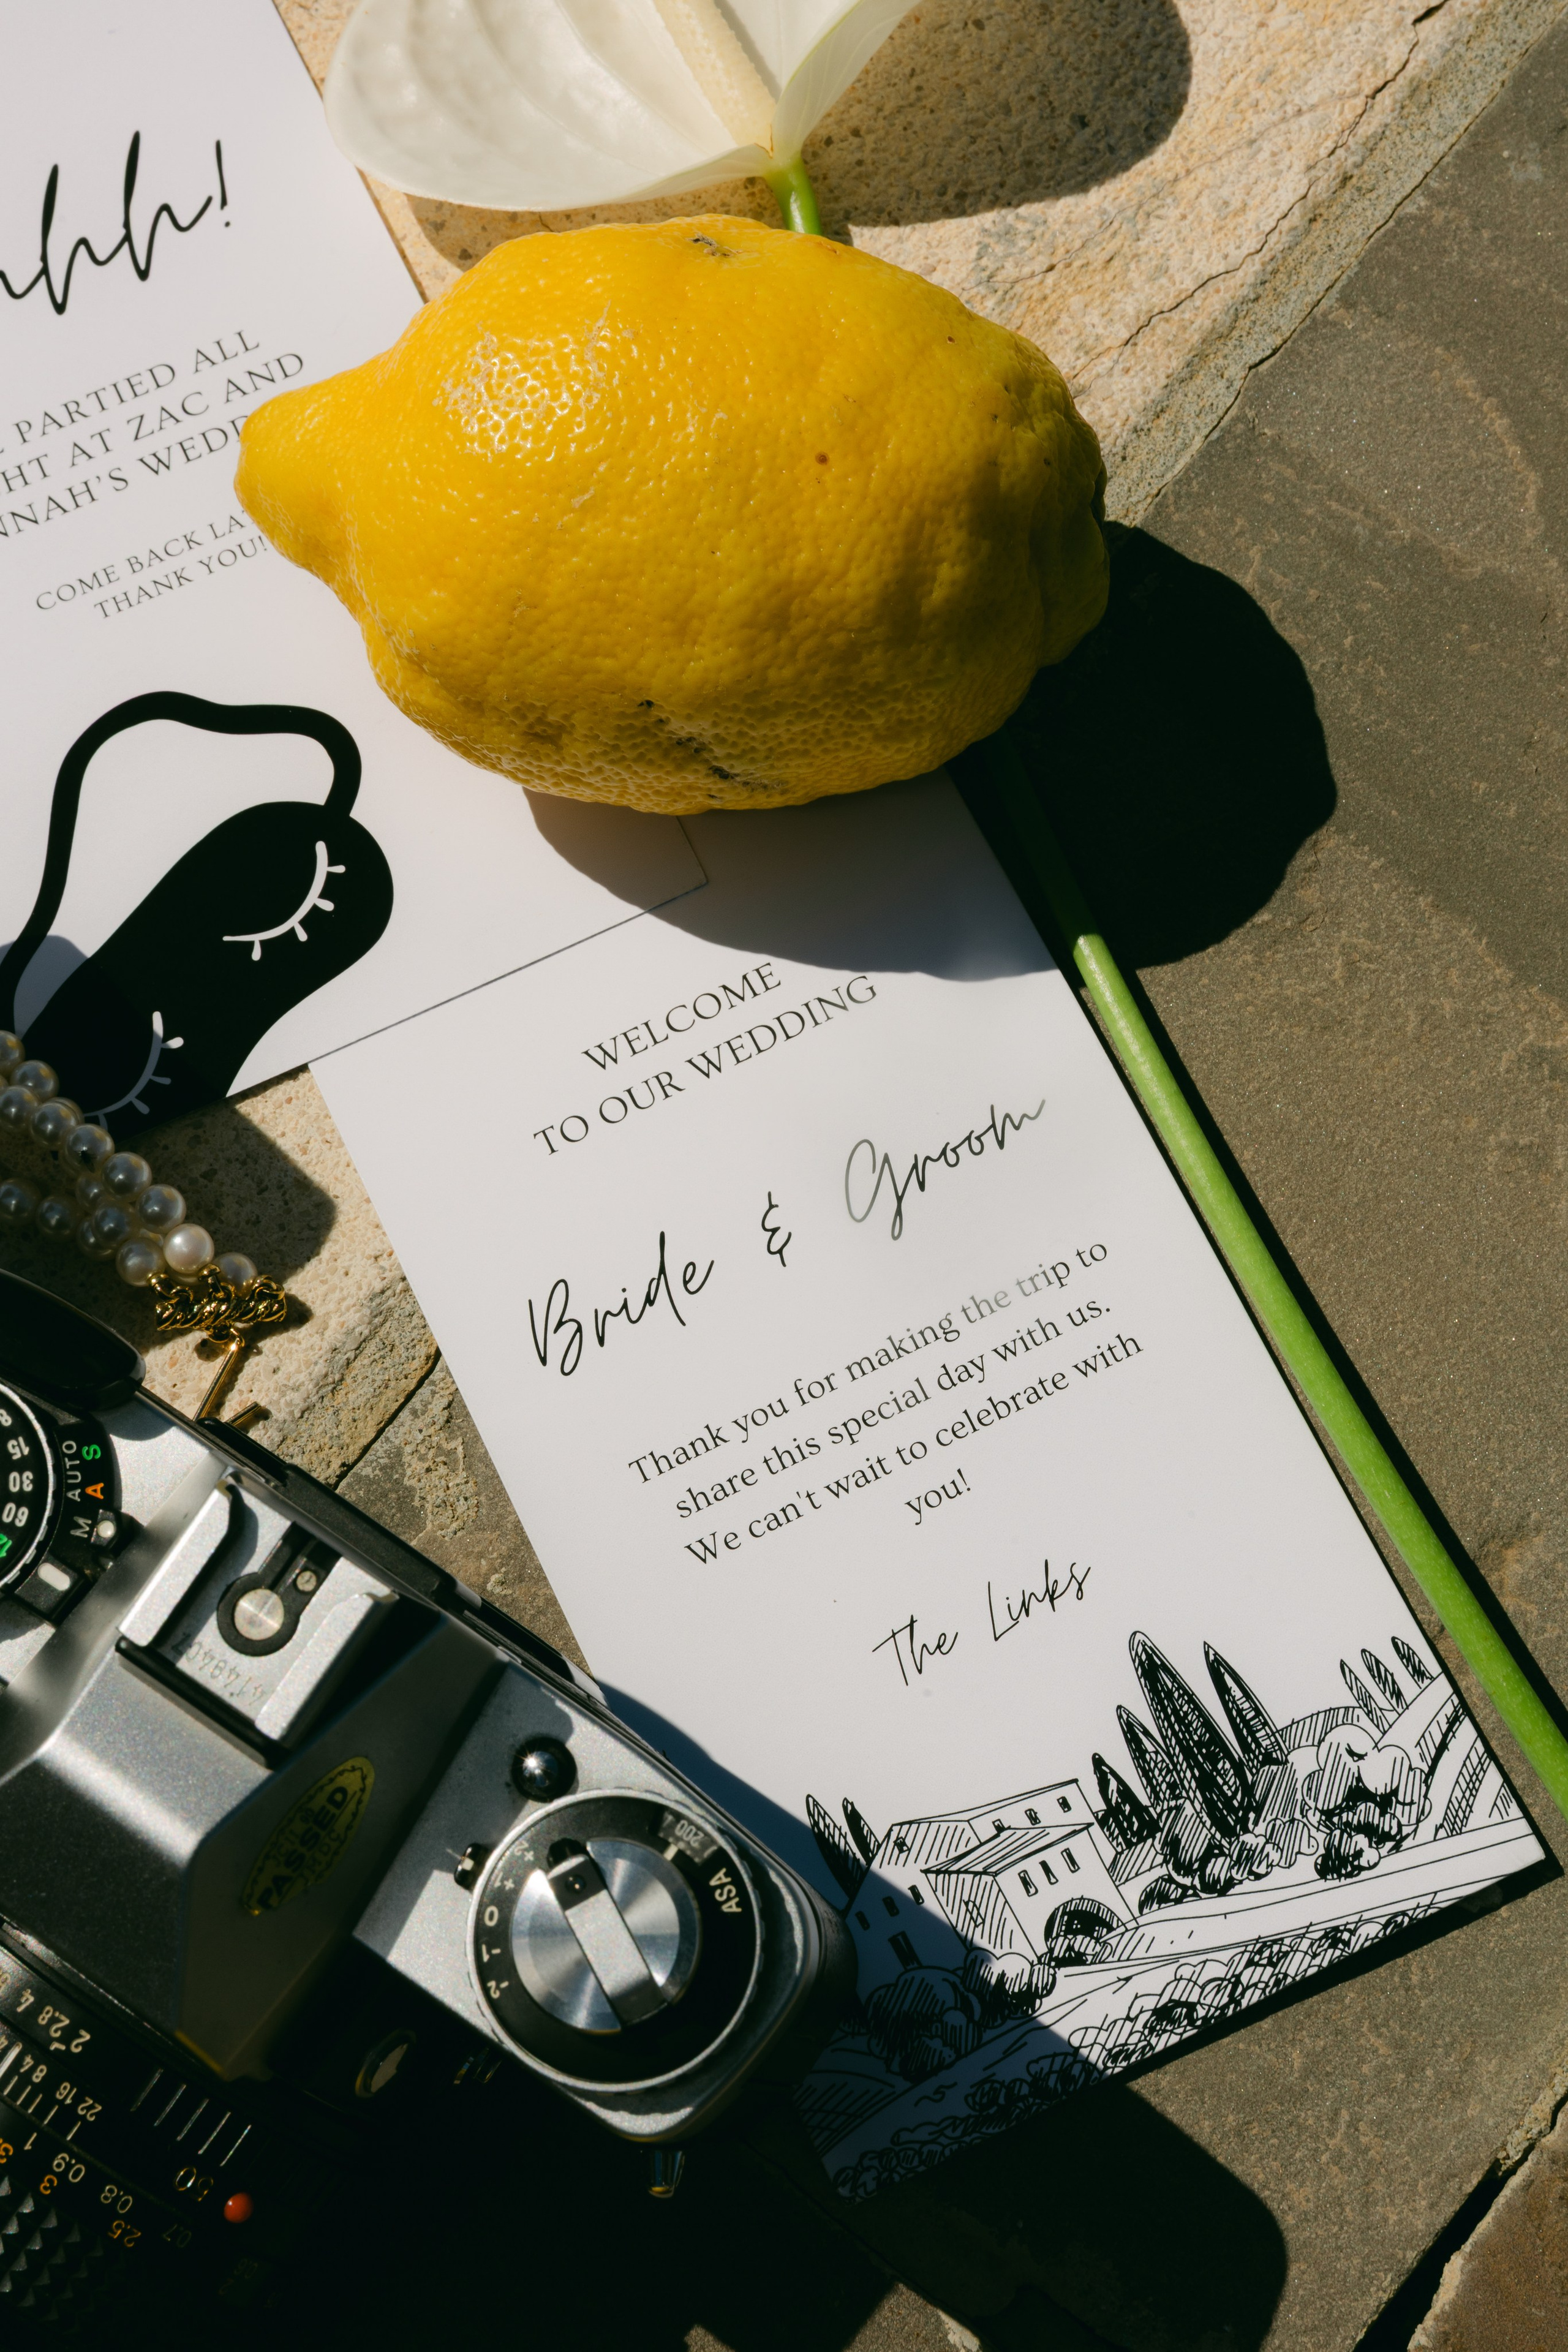 hh!
PARTIED ALL
HT AT ZAC AND
NNAH'S WEDD
COME BACK LAT
THANK YOU!
WELCOME
TO OUR WEDDING
Bride & Groom
Thank you for making the trip to
share this special day with us.
We can't wait to celebrate with
you!
The Links
8
15
30
60
AUTO
M A S
4148407
PASSED
200
ASA
+2
+1
0
2 2.8 4
22 16 8 4
50
1
0.9
0.8
0.7
3
2.5